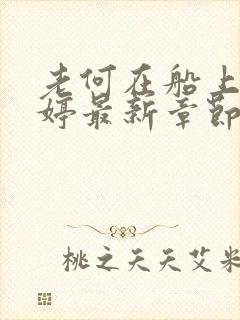 老何在船上
婷最新章节
桃之夭夭艾米